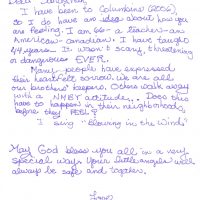 Dear Sandyhook,
I have been to Columbine (2006),
So I do have an idea about how you
are feeling. I am 66 - a teacher - an
American - Canadian. I have taught
44 years. It wasn't scary, threatening
or dangerous EVER.
Many people have expressed
their heartfelt sorrow, we are all
our brothers' keepers. Others walk away
with a NMBY attitude.. Does this
have to happen in their neighborhoods
before they FEEL?
I sing "Blowing in the Wind"
May God bless you all in a very
special way. Your little angels will
always be safe and together.
Love